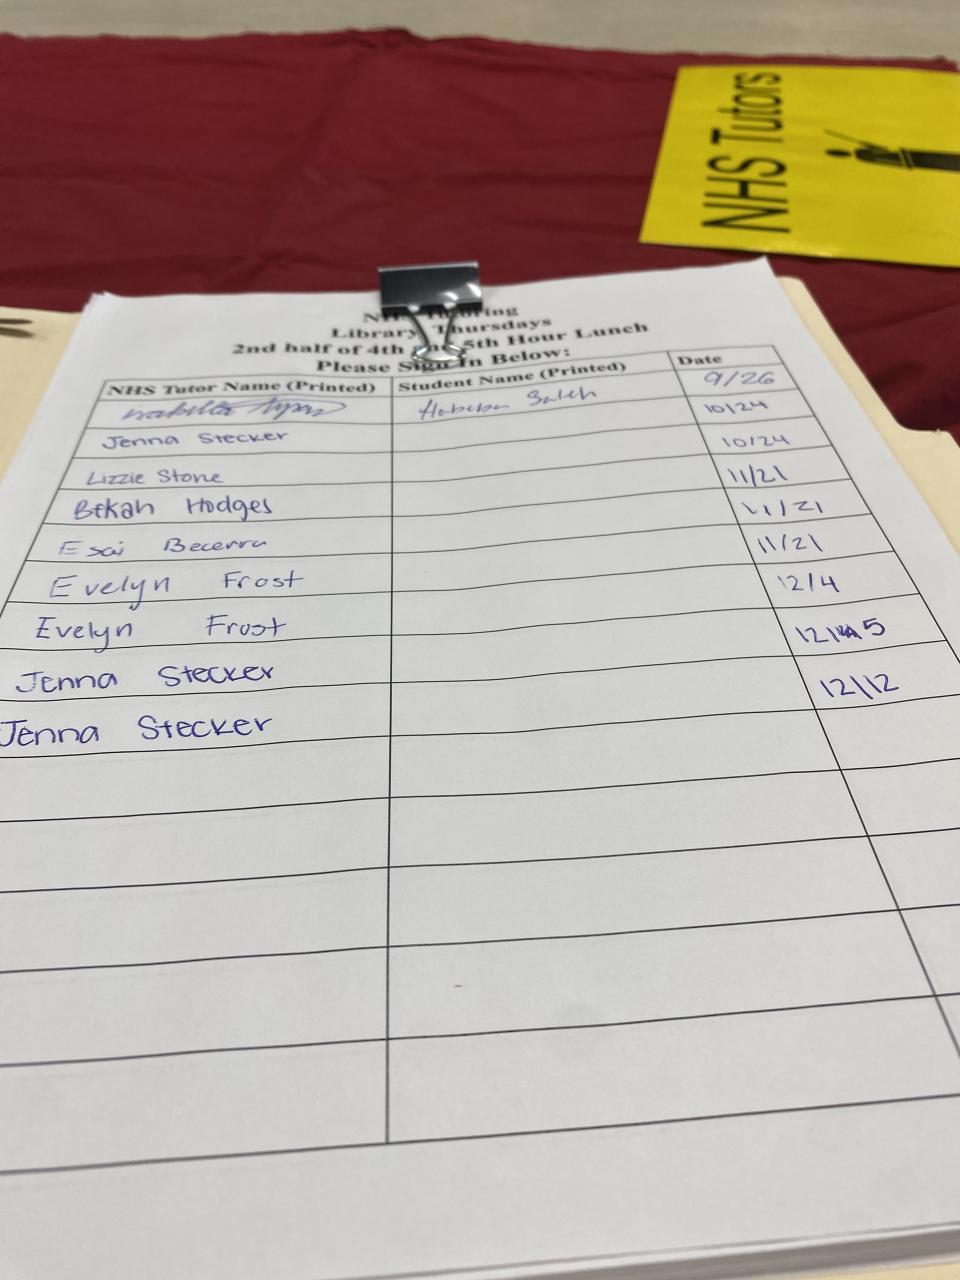 NHS Tutors
NHS Tutoring
Library Thursdays
2nd half of 4th and 5th Hour Lunch
Please Sign In Below:
NHS Tutor Name (Printed) Student Name (Printed) Date
Isabella 9/26
Jenna Stecker 10/24
Lizzie Stone 10/24
Bekah Hodges 11/21
Esai Becerra 11/21
Evelyn Frost 11/21
Evelyn Frost 12/4
Jenna Stecker 12/5
Jenna Stecker 12/12